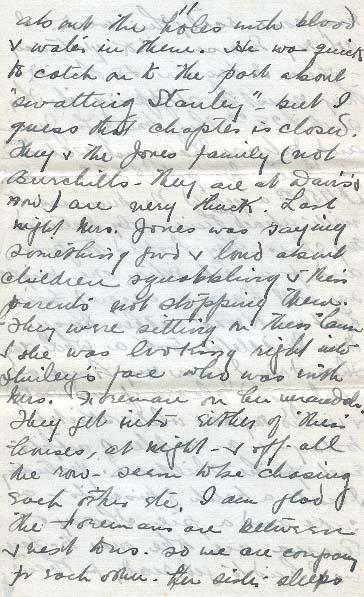 about the "holes with blood
& water in them. He was quick
to catch on to the part about
"swatting Stanley" - but I
guess that chapter is closed
They & the Jones family (not
Burchills - They are at Davis's
now) are very thick. Last
night Mrs. Jones was saying
something good & loud about
children squabbling & their
parents not stopping them.
They were sitting on their lawn
& she was looking right into
Shirley's face who was with
Mrs. Foreman on her verandah
They get into either of their
houses, at night - & off all
the row - seem to be chasing
each other etc. I am glad
the Foremans are between
& next to us. so we are company
for each other. Her sister sleeps